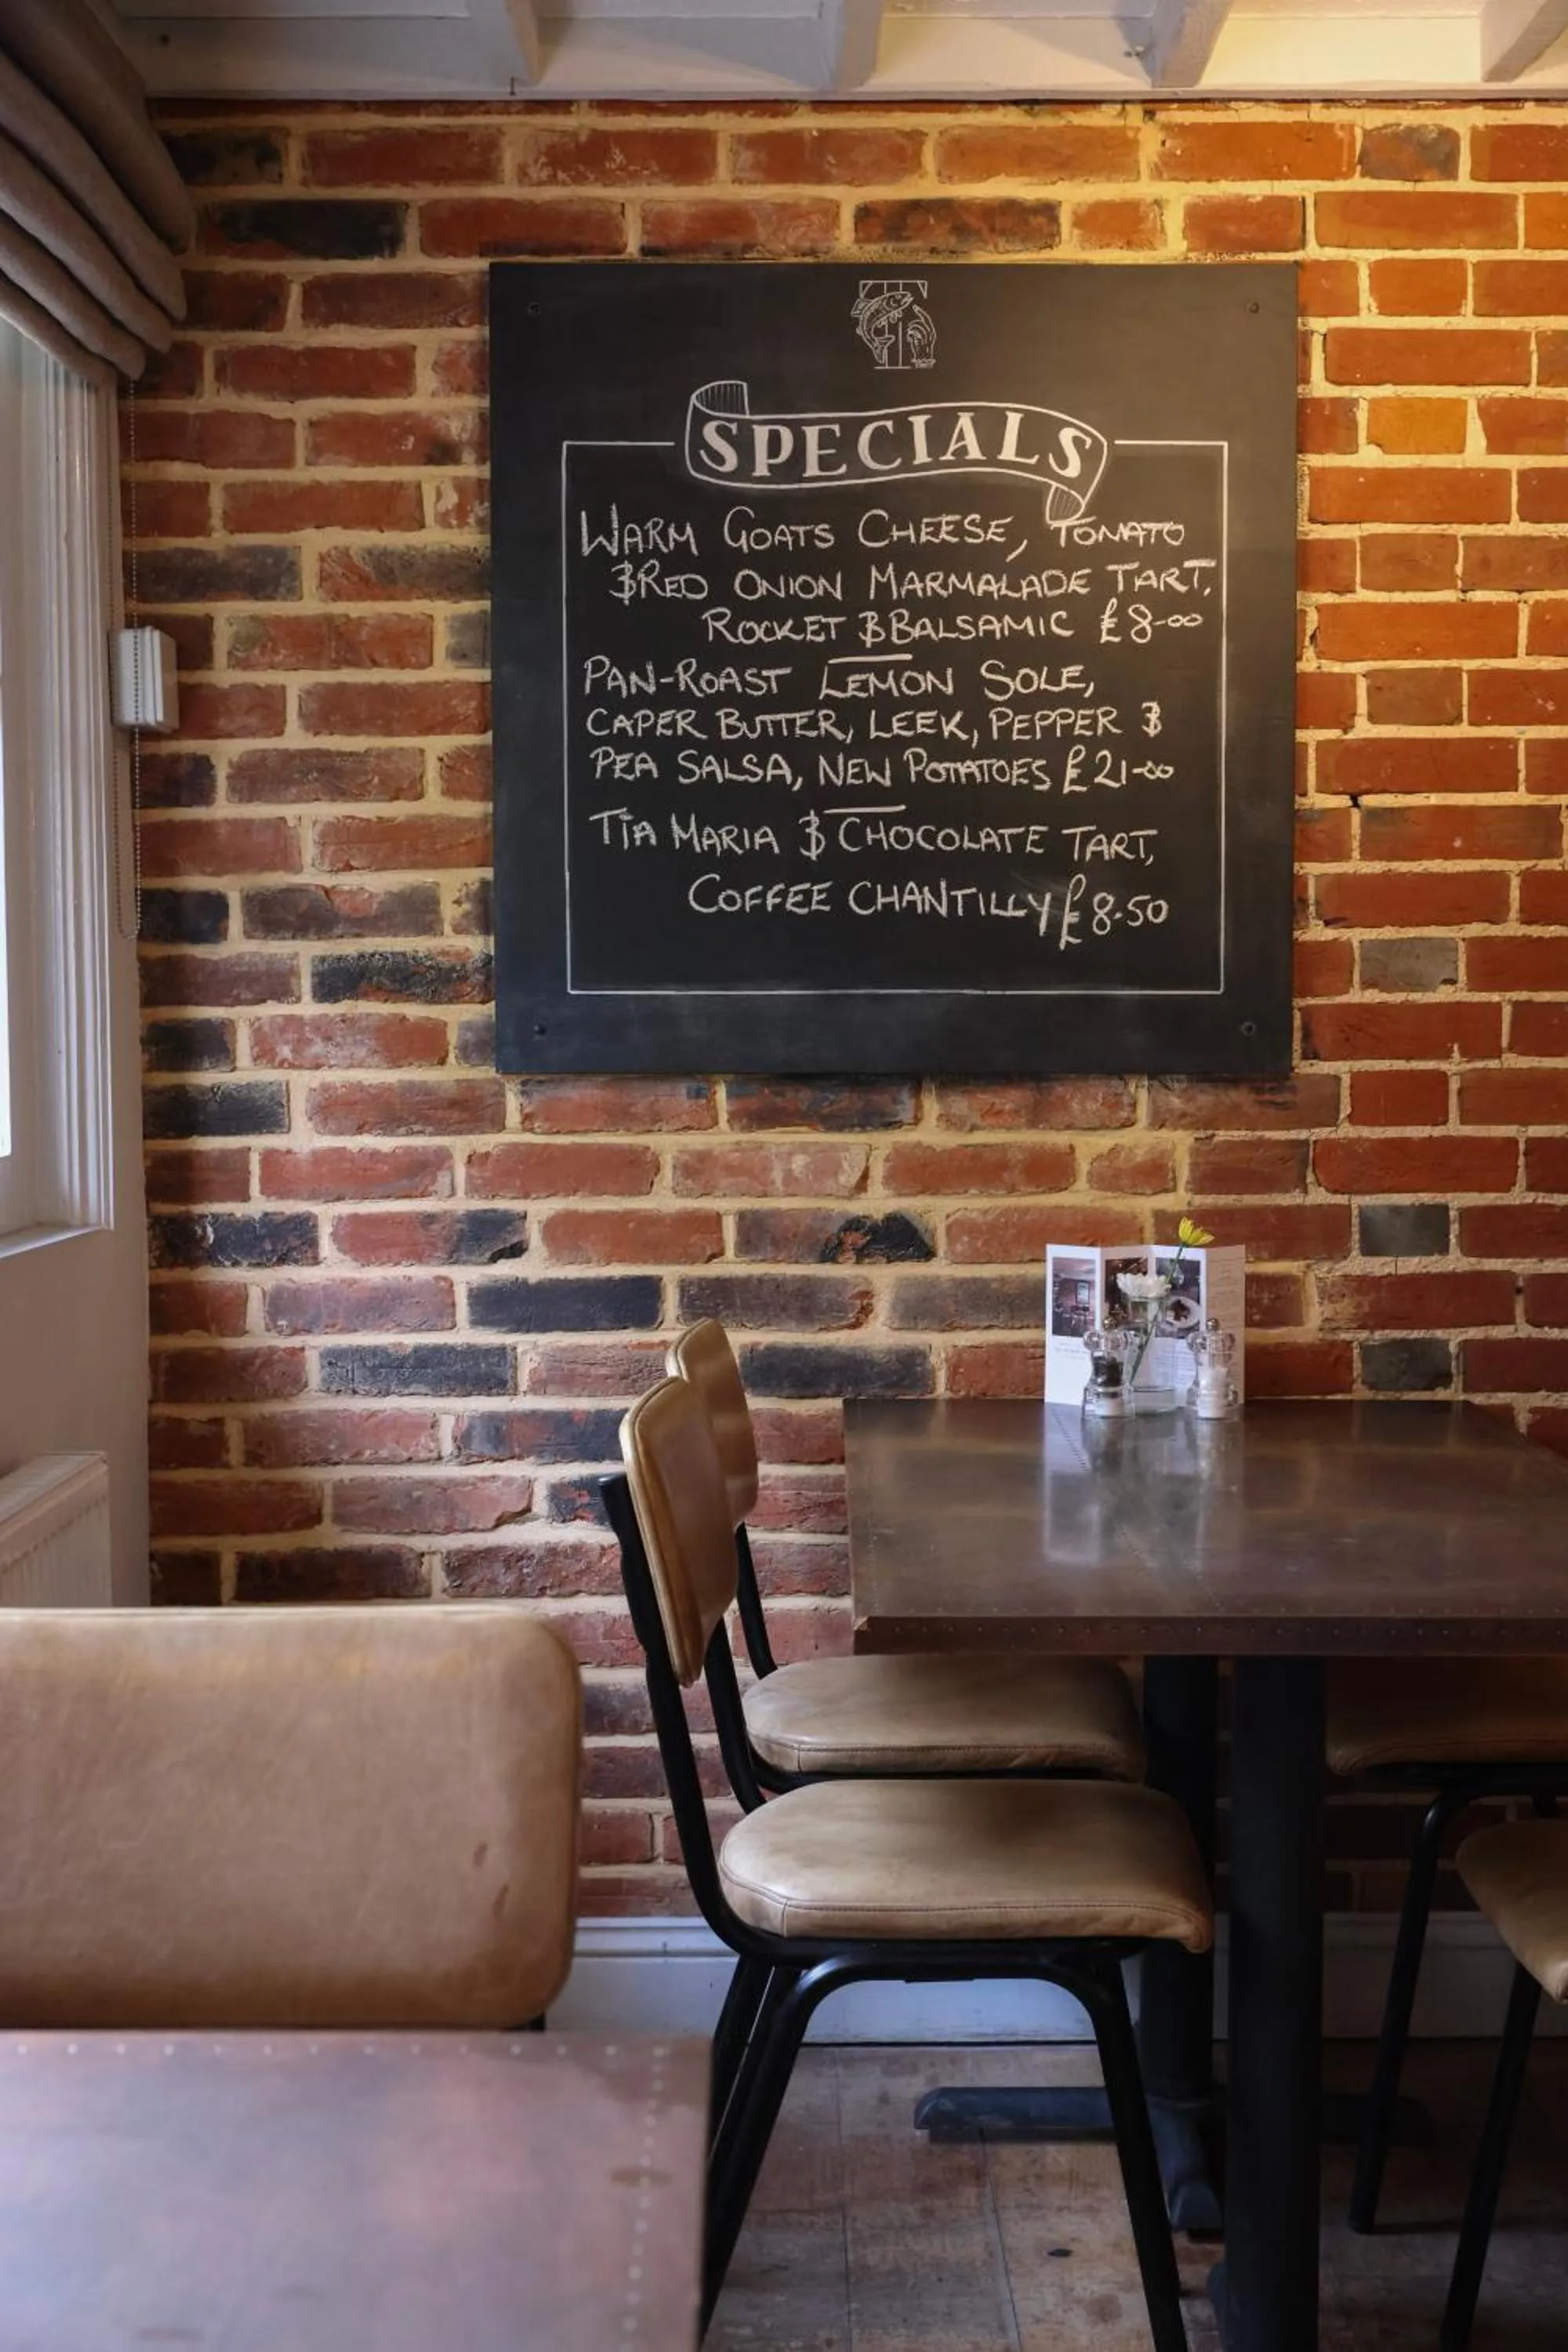 SPECIALS
WARM GOATS CHEESE, TOMATO
& RED ONION MARMALADE TART,
ROCKET & BALSAMIC £8-00
PAN-ROAST LEMON SOLE,
CAPER BUTTER, LEEK, PEPPER &
PEA SALSA, NEW POTATOES £21-00
TIA MARIA & CHOCOLATE TART,
COFFEE CHANTILLY £8.50